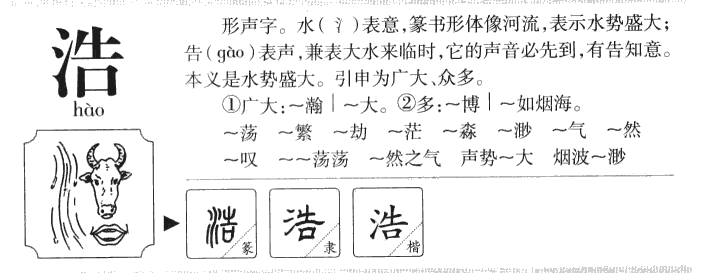 浩
hào
形声字。水(氵)表意,篆书形体像河流,表示水势盛大;
告(gào)表声,兼表大水来临时,它的声音必先到,有告知意。
本义是水势盛大。引申为广大、众多。
①广大:~瀚|~大。②多:~博|~如烟海。
~荡 ~繁 ~劫 ~茫 ~淼 ~渺 ~气 ~然
~叹 ~~荡荡 ~然之气 声势~大 烟波~渺
浩 篆 浩 隶 浩 楷